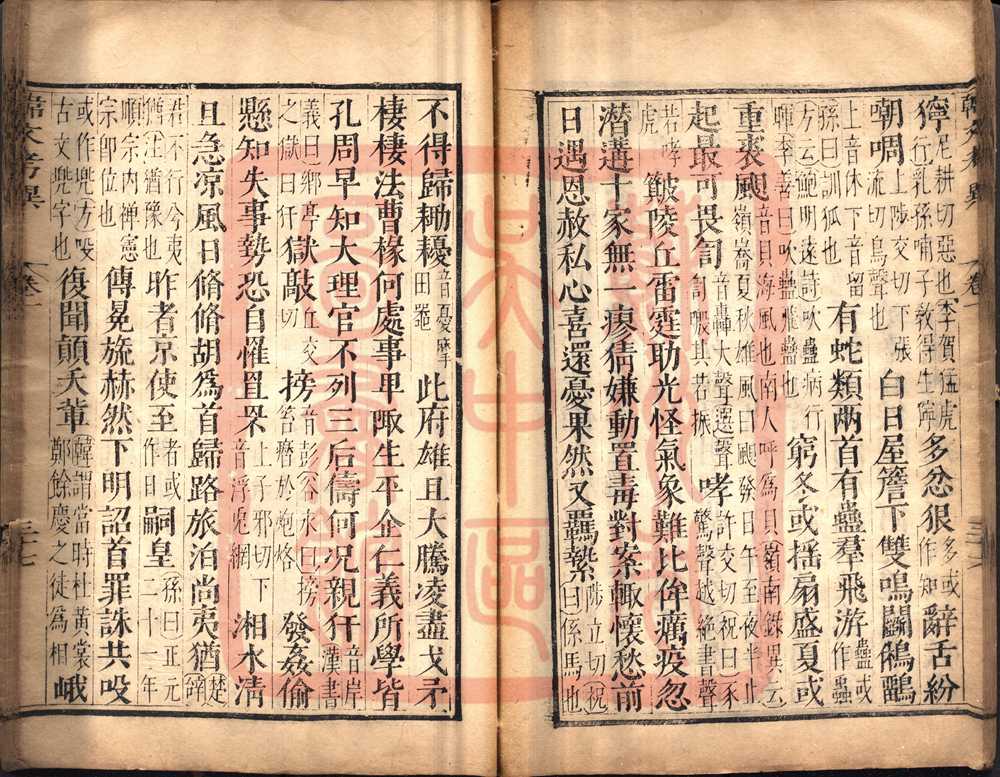 韓文考異 卷一
獰尼耕切惡也李賀猛虎行乳孫哺子教得生獰多忿狠多或作知辭舌紛
朝啁上陟交切下張流切鳥聲也白日屋簷下雙鳴鬭鵂鶹
上音休下音留孫曰訓狐也有蛇類兩首有蠱羣飛游蠱或作蟲
方云鮑明遠詩吹蠱病行暉李善曰吹蠱飛蠱也窮冬或搖扇盛夏或
重裘颶音貝海風也南人呼爲貝嶺南錄異云嶺嶠夏秋雄風曰颶發日午至夜半止
起最可畏訇音轟大聲選聲訇礚其若振哮許交切祝曰豕驚聲越絕書聲
若哮虎簸陵丘雷霆助光怪氣象難比侔癘疫忽
潛遘十家無一瘳猜嫌動置毒對案輒懷愁前
日遇恩赦私心喜還憂果然又羈縶陟立切祝曰係馬也
不得歸耡耰音憂摩田器此府雄且大騰凌盡戈矛
棲棲法曹掾何處事卑陬生平企仁義所學皆
孔周早知大理官不列三后儔何况親犴音岸漢書
義曰鄉亭之獄曰犴獄敲丘交切搒音彭谷永曰搒笞瘠於炮烙發姦偷
懸知失事勢恐自罹罝罘上子邪切下音浮兎網湘水清
且急凉風日脩脩胡爲首歸路旅泊尚夷猶楚辭
君不行兮夷猶注猶豫也昨者京使至者或作日嗣皇孫曰正元二十一年
順宗内禪憲宗即位也傳冕旒赫然下明詔首罪誅共吺
或作兜方吺古文兜字也復聞顛夭輩韓謂當時杜黃裳鄭餘慶之徒爲相峨
韓文考異 卷一 三七